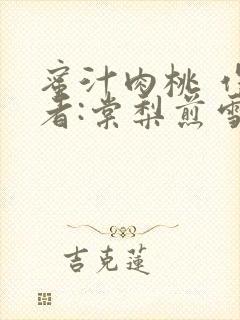 蜜汁肉桃
者:棠梨煎雪
吉克蓮